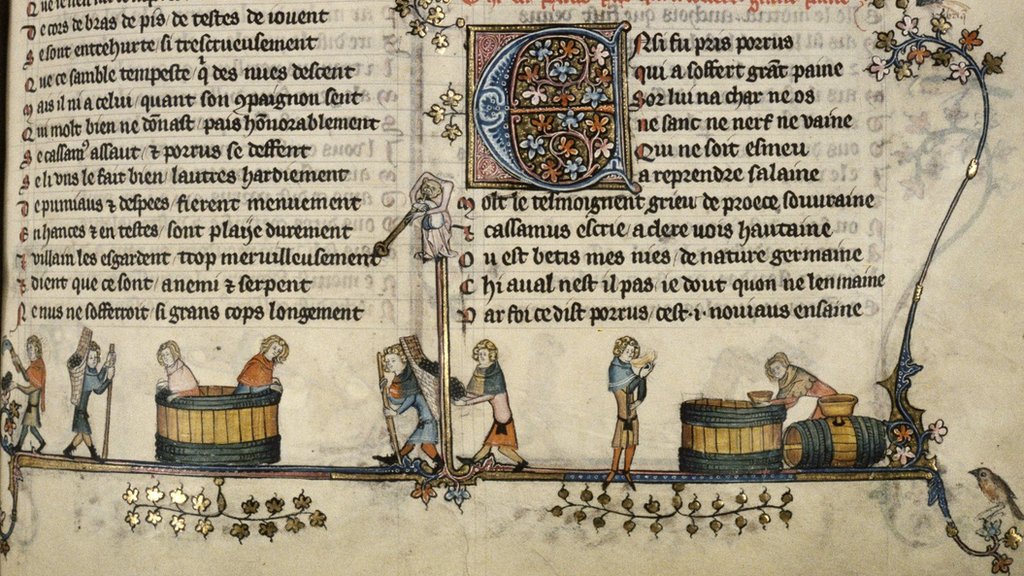 De cors de bras de pis de testes de iouent
Se sont entrehurte si trescrueusement
Que ce samble tempeste q̄ des nues descent
Mais il ni a celui quant son ꝯpaignon sent
Qui molt bien ne dōnast pais hōnorablement
Se cassamꝰ assaut ⁊ porrus se deffent
Se li uns le fait bien lautres hardiement
De pumiaus ⁊ despees fierent menuement
En hances ⁊ en testes sont plaije durement
⁊ villain les esgardent trop meruilleusement
⁊ dient que ce sont anemi ⁊ serpent
Nenus ne sofferroit si grans cops longement
Ensi fu pris porrus
qui a soffert grāt paine
Sor lui na char ne os
ne sanc ne nerf ne vaine
Qui ne soit esmeu
a reprendre salaine
Molt le tesmoignent grieu de proece souuraine
⁊ cassamus escrie a clere uois hautaine
Ou est betis mes nies de nature germaine
Chi aual nest il pas ie dout quon ne len maine
Par foi ce dist porrus cest ·i· nouiaus ensaine